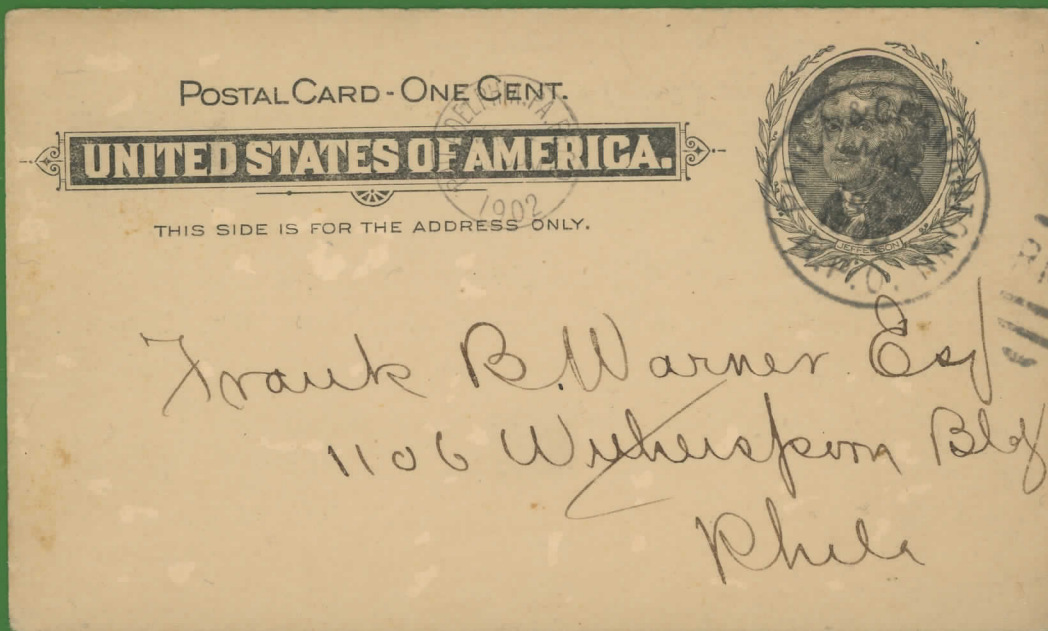 POSTAL CARD - ONE CENT.
UNITED STATES OF AMERICA.
THIS SIDE IS FOR THE ADDRESS ONLY.
1902
JEFFERSON
Frank B. Warner Esq
1106 Witherspoon Bldg
Phila